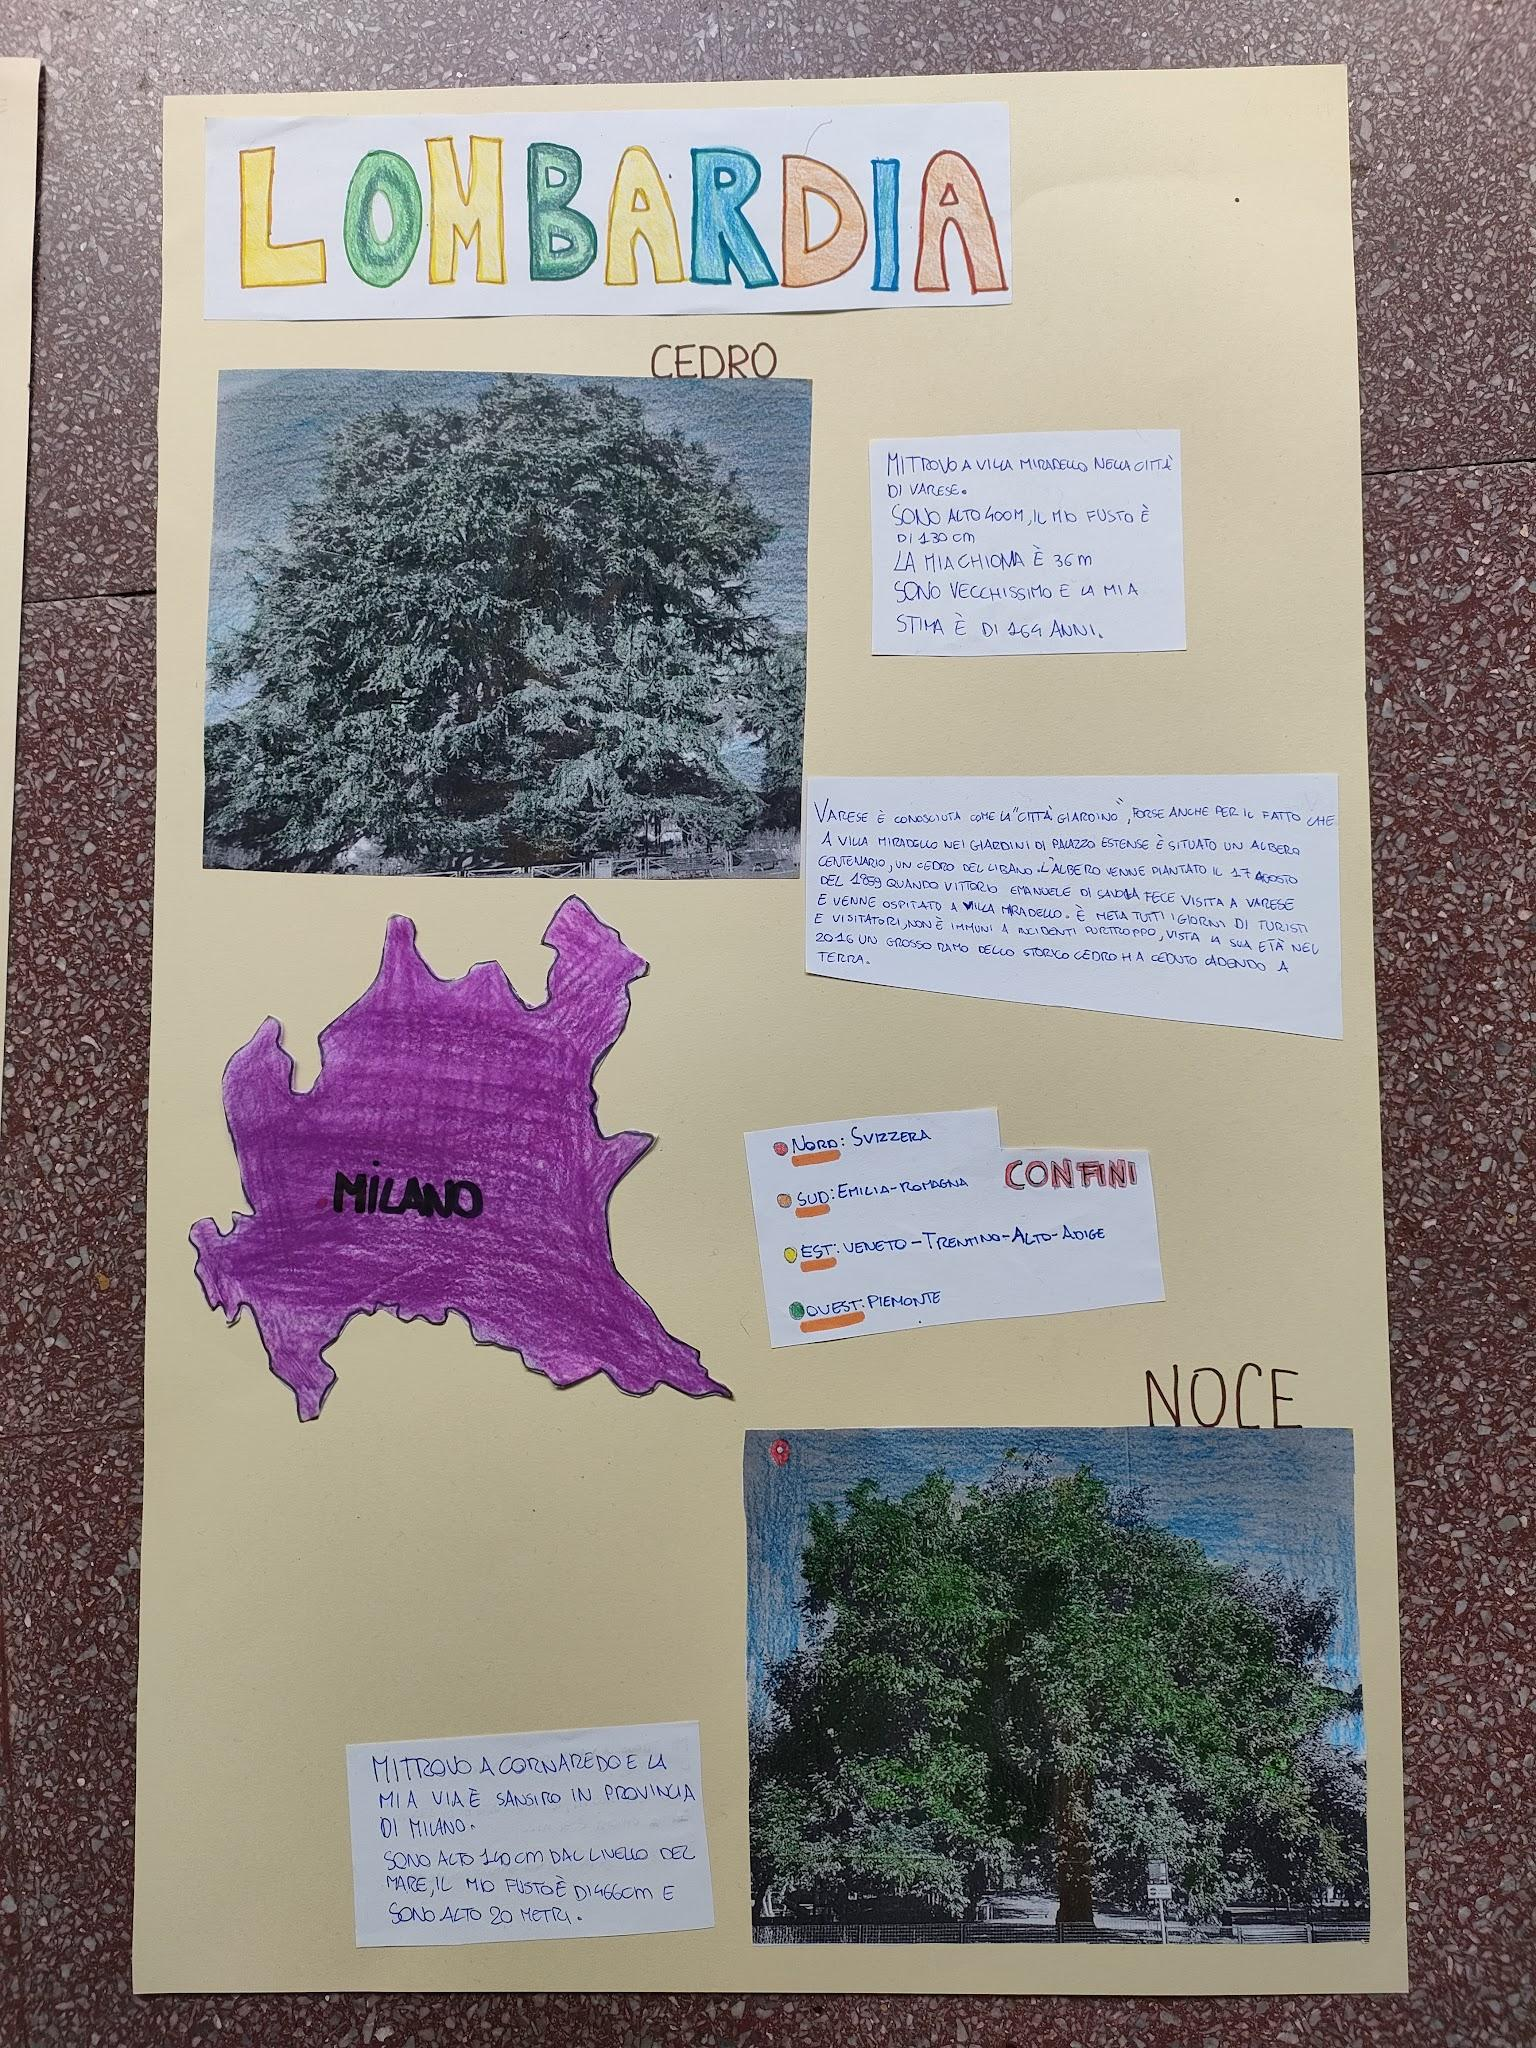 LOMBARDIA
CEDRO
MI TROVO A VILLA MIRABELLO NELLA CITTÀ
DI VARESE.
SONO ALTO 400M, IL MIO FUSTO È
DI 130 cm
LA MIA CHIOMA È 36m
SONO VECCHISSIMO E LA MIA
STIMA È DI 164 ANNI.
VARESE È CONOSCIUTA COME LA "CITTÀ GIARDINO", FORSE ANCHE PER IL FATTO CHE
A VILLA MIRABELLO NEI GIARDINI DI PALAZZO ESTENSE È SITUATO UN ALBERO
CENTENARIO, UN CEDRO DEL LIBANO. L'ALBERO VENNE PIANTATO IL 17 AGOSTO
DEL 1859 QUANDO VITTORIO EMANUELE DI SAVOIA FECE VISITA A VARESE
E VENNE OSPITATO A VILLA MIRABELLO. È META TUTTI I GIORNI DI TURISTI
E VISITATORI, NON È IMMUNI A INCIDENTI PURTROPPO, VISTA LA SUA ETÀ NEL
2016 UN GROSSO RAMO DELLO STORICO CEDRO HA CEDUTO CADENDO A
TERRA.
MILANO
CONFINI
NORD: SVIZZERA
SUD: EMILIA-ROMAGNA
EST: VENETO-TRENTINO-ALTO-ADIGE
OVEST: PIEMONTE
NOCE
MI TROVO A CORNAREDO E LA
MIA VIA È SANSIRO IN PROVINCIA
DI MILANO.
SONO ALTO 140 cm DAL LIVELLO DEL
MARE, IL MIO FUSTO È DI 466cm E
SONO ALTO 20 METRI.